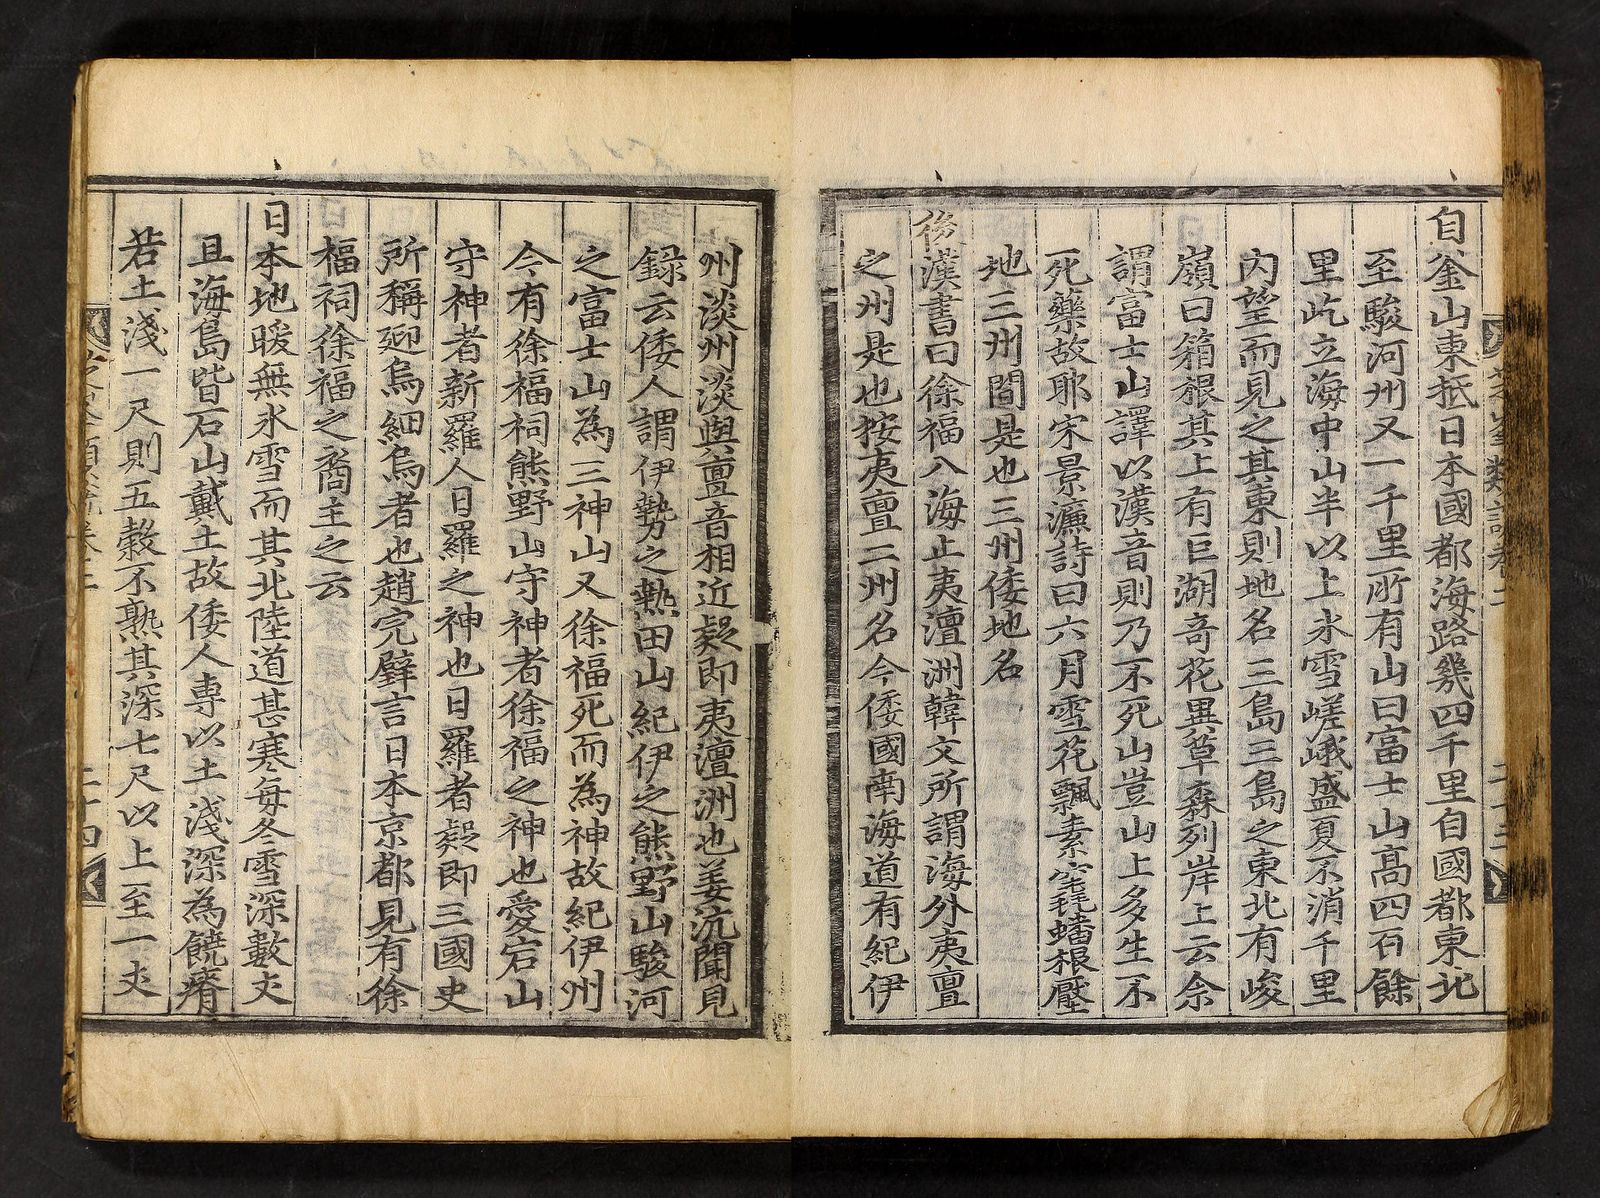 自釜山東抵日本國都海路幾四千里自國都東北
至駿河州又一千里所有山曰富士山高四百餘
里屹立海中山半以上氷雪嵯峨盛夏不消千里
內望而見之其東則地名三島三島之東北有峻
嶺曰箱根其上有巨湖奇花異草森列岸上云余
謂富士山譯以漢音則乃不死山豈山上多生不
死藥故耶宋景濂詩曰六月雪花飄素毳蟠根壓
地三州間是也三州倭地名
後漢書曰徐福入海止夷澶洲韓文所謂海外夷亶
之州是也按夷亶二州名今倭國南海道有紀伊
州淡州淡與亶音相近疑即夷澶洲也姜沆聞見
録云倭人謂伊勢之熱田山紀伊之熊野山駿河
之富士山為三神山又徐福死而為神故紀伊州
今有徐福祠熊野山守神者徐福之神也愛宕山
守神者新羅人日羅之神也日羅者疑即三國史
所稱迎烏細烏者也趙完璧言日本京都見有徐
福祠徐福之裔主之云
日本地暖無氷雪而其北陸道甚寒每冬雪深數丈
且海島皆石山戴土故倭人專以土淺深為饒瘠
若土淺一尺則五穀不熟其深七尺以上至一丈